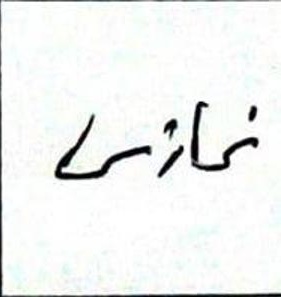 نمازی